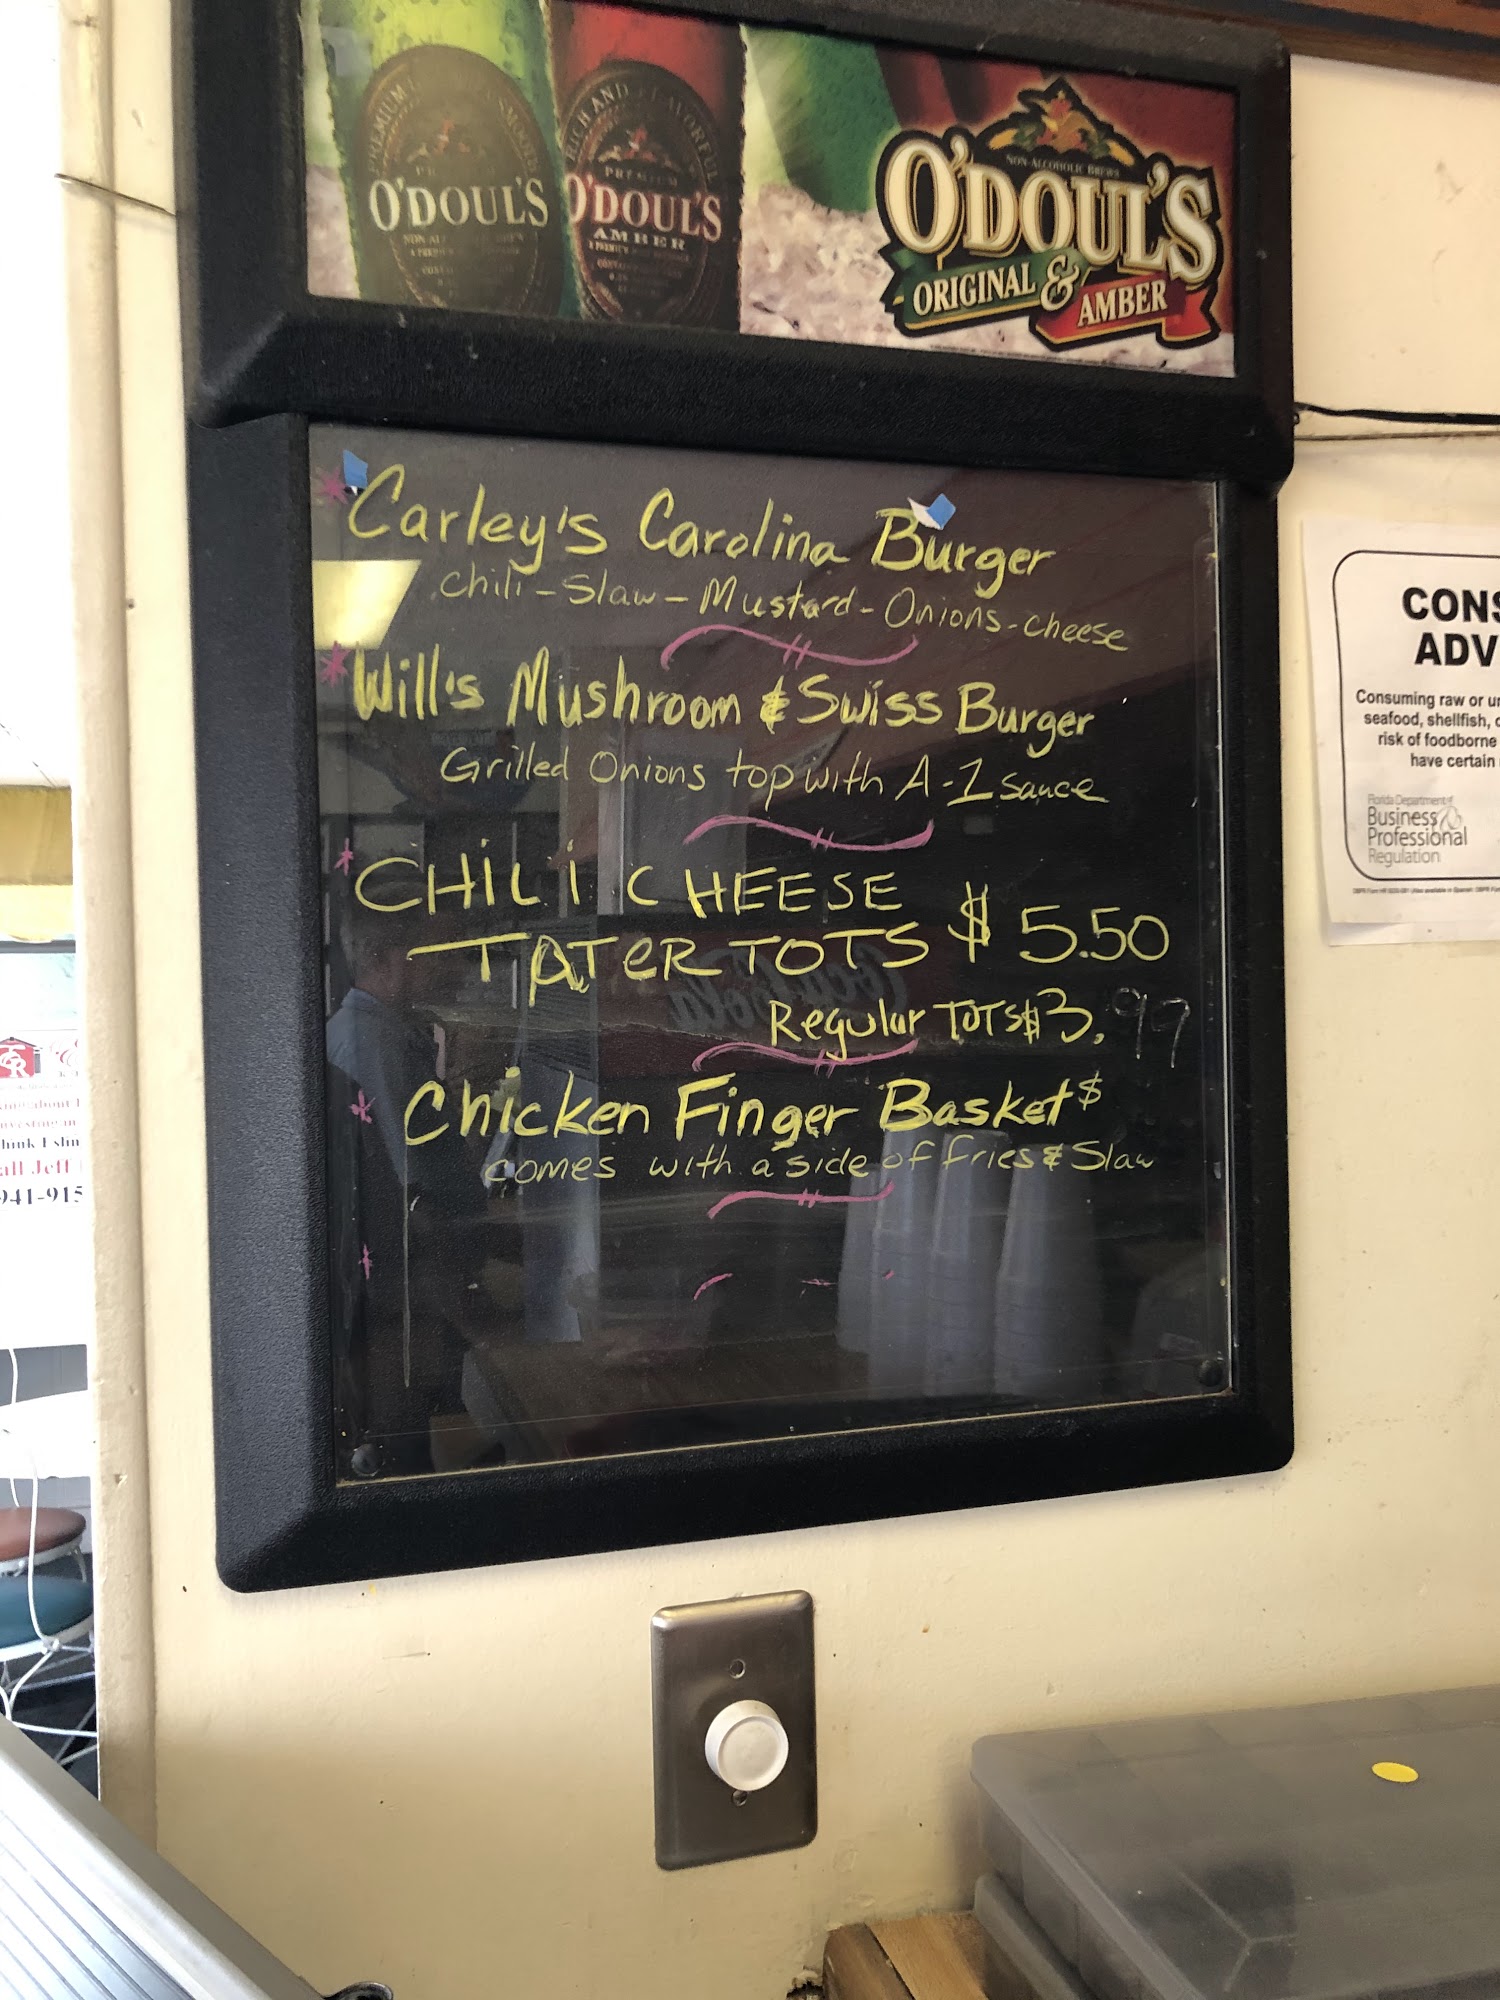 O'DOUL'S
PREMIUM
O'DOUL'S
AMBER
NON-ALCOHOLIC BREWS
O'DOUL'S
ORIGINAL & AMBER
Carley's Carolina Burger
Chili - Slaw - Mustard - Onions - cheese
Will's Mushroom & Swiss Burger
Grilled Onions top with A-1 sauce
CHiLi CHEESE
TATeR TOTS $5.50
Regular TOTS $3.99
Chicken Finger Basket $
comes with a side of fries & Slaw
CONS
ADV
Consuming raw or un
seafood, shellfish,
risk of foodborne
have certain
Florida Department of
Business
Professional
Regulation
all Jeff
941-915